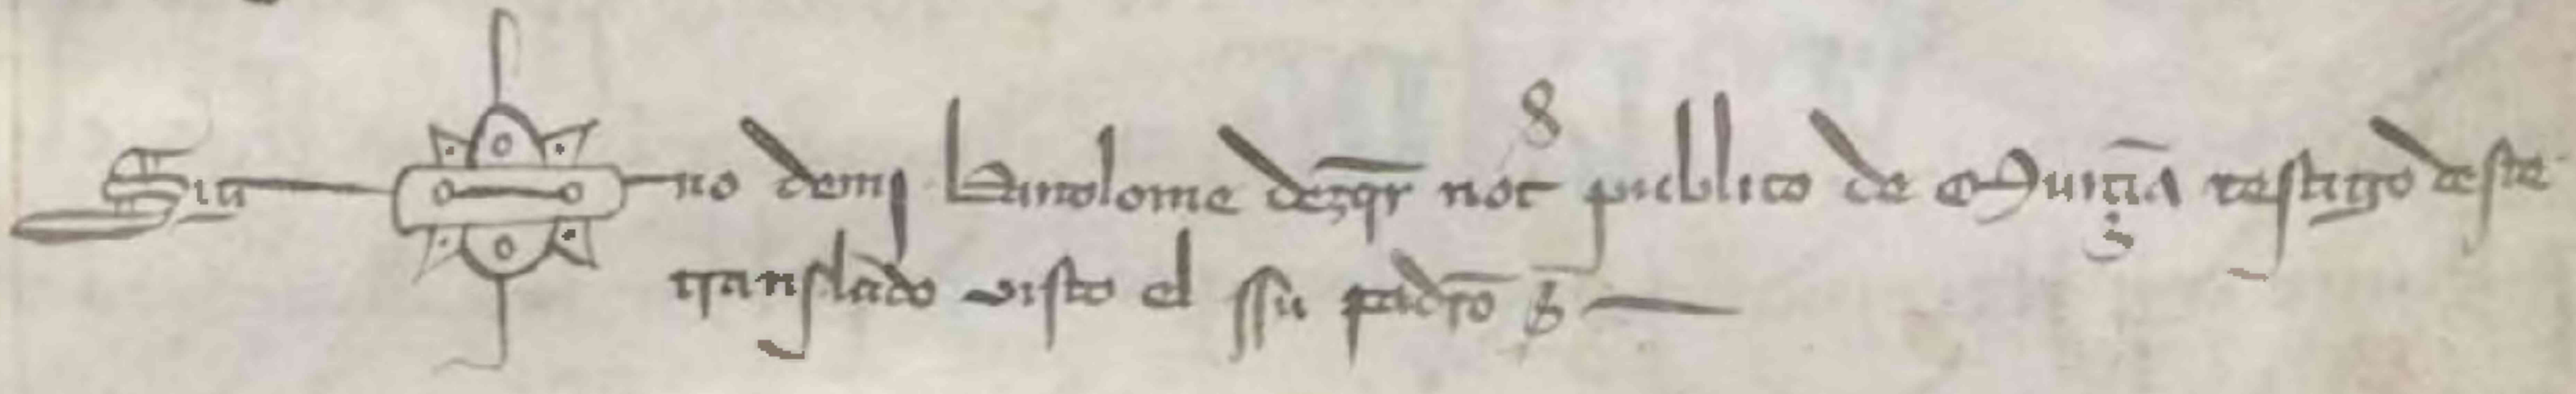 Sig no de mj Bartolome de not publico de Murcia testigo deste
translado visto el ssu padro